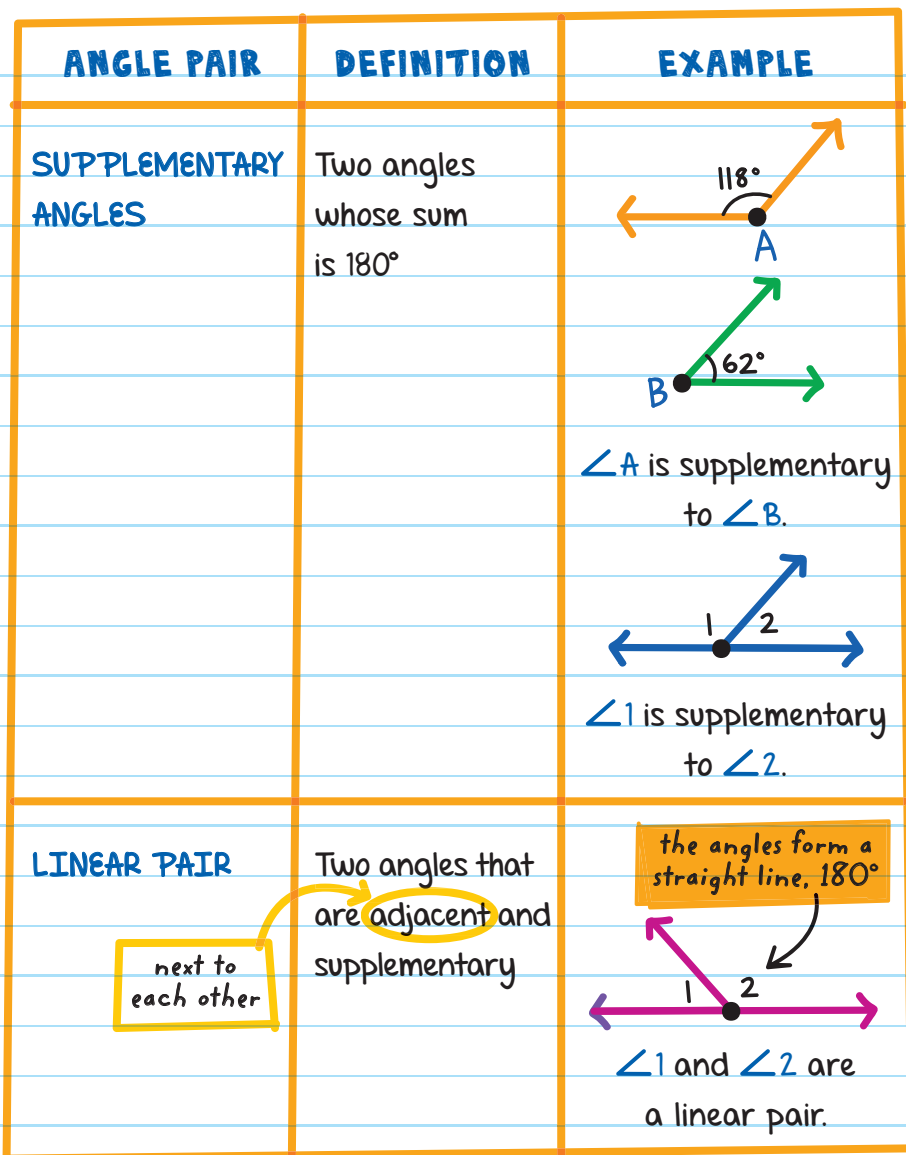 ANGLE PAIR
DEFINITION
EXAMPLE
SUPPLEMENTARY
ANGLES
Two angles
whose sum
is 180°
118°
A
62°
B
∠A is supplementary
to ∠B.
1
2
∠1 is supplementary
to ∠2.
LINEAR PAIR
next to
each other
Two angles that
are adjacent and
supplementary
the angles form a
straight line, 180°
1
2
∠1 and ∠2 are
a linear pair.